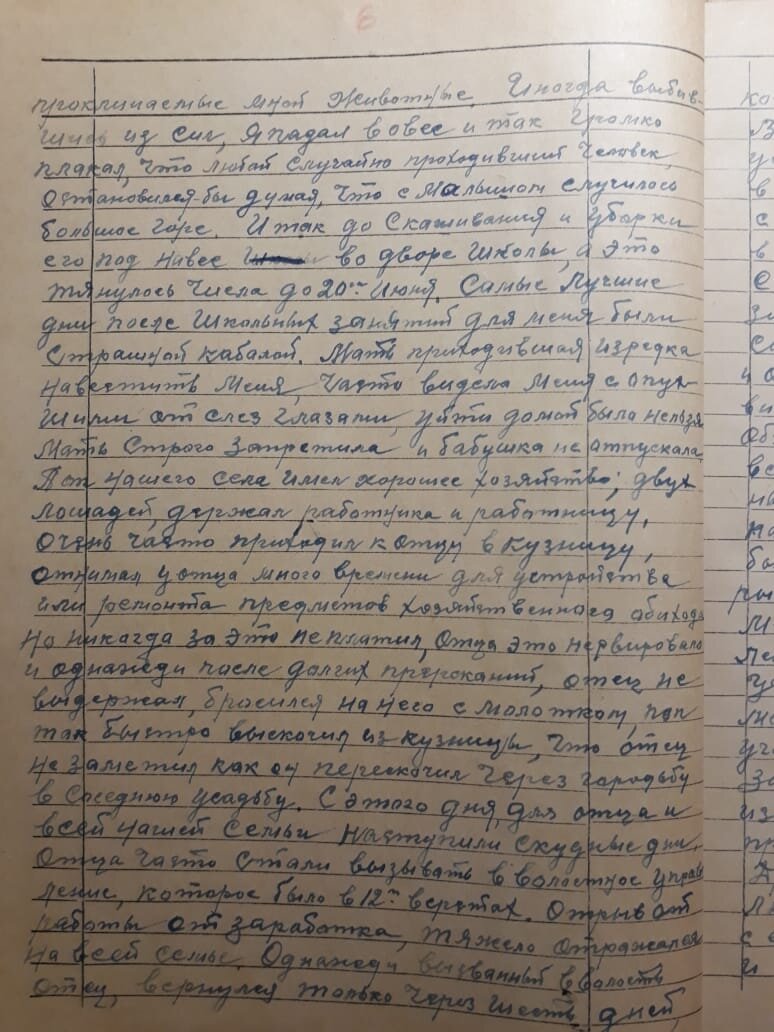 6
проклинаемые мной животные. Иногда выбив-
шись из сил, я падал в овес и так громко
плакал, что любой случайно проходивший человек,
остановился-бы думая, что с малышом случилось
большое горе. И так до скашивания и уборки
его под навес во дворе школы, а это
тянулось числа до 20го июня. Самые лучшие
дни после школьных занятий для меня были
страшной кабалой. Мать приходившая изредка
навестить меня, часто видела меня с опух-
шими от слез глазами, уйти домой было нельзя
мать строго запретила и бабушка не отпускала.
Поп нашего села имел хорошее хозяйство; двух
лошадей, держал работника и работницу,
очень часто приходил к отцу в кузницу,
отнимал у отца много времени для устройства
или ремонта предметов хозяйственного обихода
но никогда за это не платил, отца это нервировало
и однажди после долгих пререканий, отец не
выдержал, бросился на него с молотком, поп
так быстро выскочил из кузницы, что отец
не заметил как он перескочил через городьбу
в соседнюю усадьбу. С этого дня, для отца и
всей нашей семьи наступили скудные дни.
Отца часто стали вызывать в волостное управ
ление, которое было в 12ти верстах. Отрыв от
работы от заработка, тяжело отражался
на всей семье. Однажди вызванный в волость
отец, вернулся только через шесть дней,